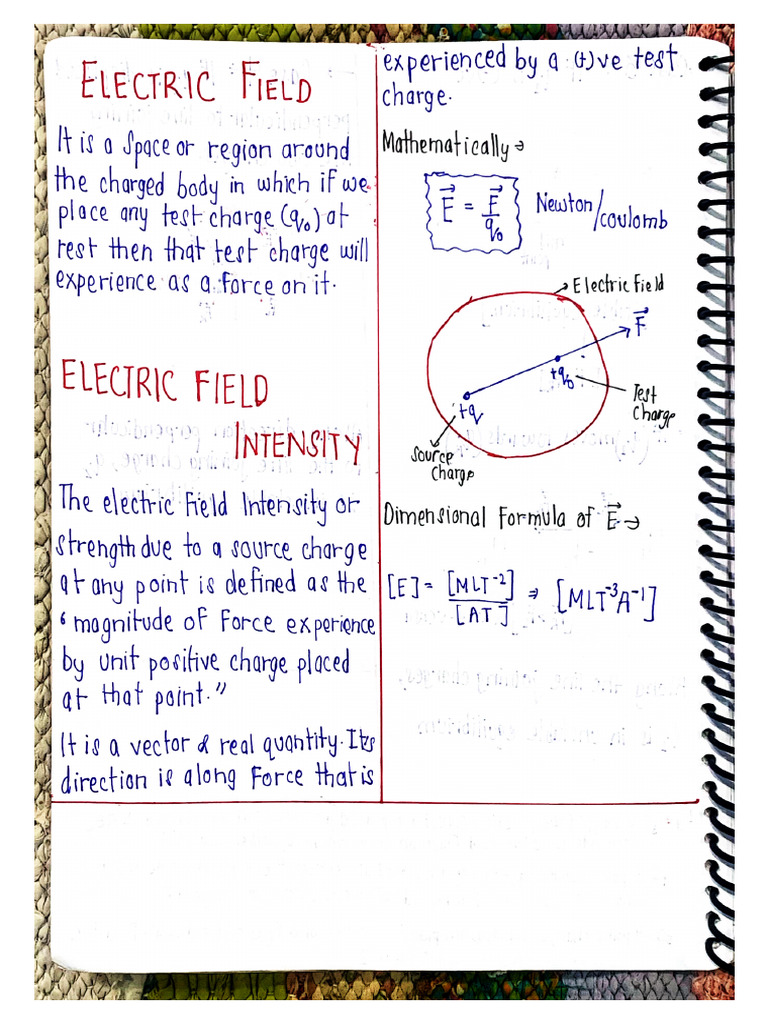 ELECTRIC FIELD
It is a space or region around
the charged body in which if we
place any test charge (q₀) at
rest then that test charge will
experience as a force on it.
ELECTRIC FIELD
INTENSITY
The electric field Intensity or
strength due to a source charge
at any point is defined as the
“magnitude of force experience
by unit positive charge placed
at that point.”
It is a vector & real quantity. Its
direction is along force that is
experienced by a (+)ve test
charge.
Mathematically →
E⃗ = F⃗/q₀ Newton/coulomb
Electric field
F⃗
+q₀
Test
charge
+q
Source
charge
Dimensional formula of E⃗ →
[E] = [MLT⁻²]/[AT] ⇒ [MLT⁻³A⁻¹]